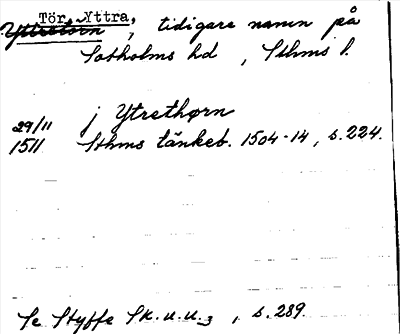 Tör, Yttra,
Yttretörn, tidigare namn på
Sotholms hd, Sthms l.
j Ytrethørn
29/11
1511 Sthms tänkeb. 1504-14, s. 224.
Se Styffe Sk. u. u. 3, s. 289.